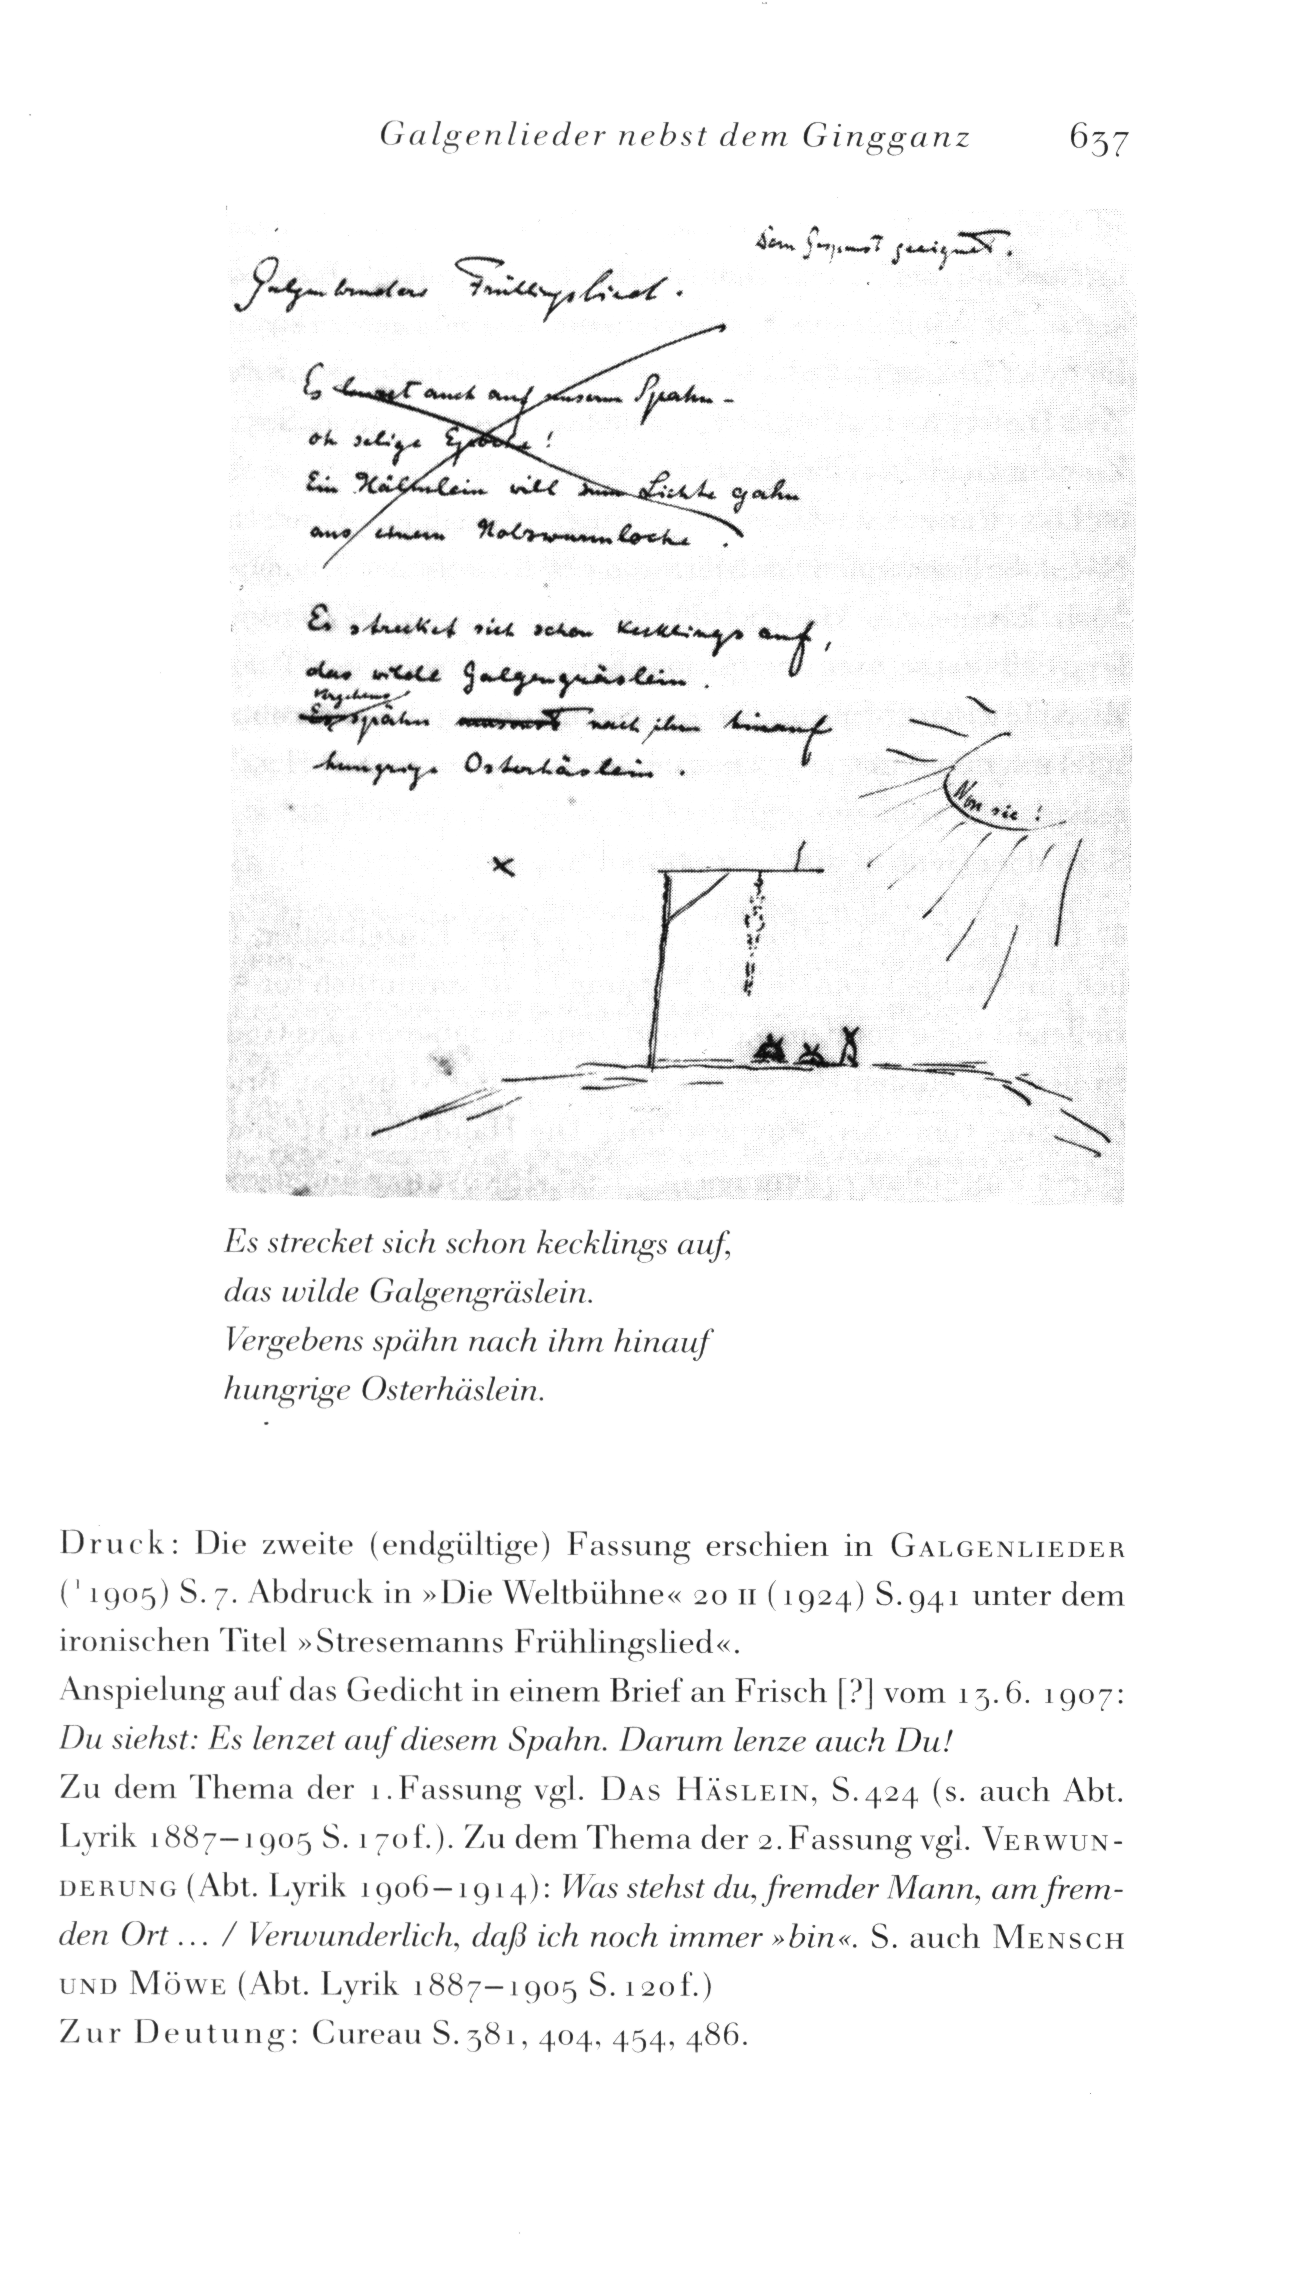 Galgenlieder nebst dem Gingganz 637
Dem Gespenst geeignet.
Galgenbruders Frühlingslied.
Es lenzet auch auf unserm Spahn –
oh selige Epoche!
Ein Hälmlein will zum Lichte gahn
aus einem Holzwurmloche.
Es strecket sich schon kecklings auf,
das wilde Galgengräslein.
Vergebens
spähn nach ihm hinauf
hungrige Osterhäslein.
Non sic!
Es strecket sich schon kecklings auf,
das wilde Galgengräslein.
Vergebens spähn nach ihm hinauf
hungrige Osterhäslein.
Druck: Die zweite (endgültige) Fassung erschien in GALGENLIEDER
(¹1905) S. 7. Abdruck in »Die Weltbühne« 20 II (1924) S. 941 unter dem
ironischen Titel »Stresemanns Frühlingslied«.
Anspielung auf das Gedicht in einem Brief an Frisch [?] vom 13. 6. 1907:
Du siehst: Es lenzet auf diesem Spahn. Darum lenze auch Du!
Zu dem Thema der 1. Fassung vgl. DAS HÄSLEIN, S. 424 (s. auch Abt.
Lyrik 1887–1905 S. 170 f.). Zu dem Thema der 2. Fassung vgl. VERWUN-
DERUNG (Abt. Lyrik 1906–1914): Was stehst du, fremder Mann, am frem-
den Ort ... / Verwunderlich, daß ich noch immer »bin«. S. auch MENSCH
UND MÖWE (Abt. Lyrik 1887–1905 S. 120 f.)
Zur Deutung: Cureau S. 381, 404, 454, 486.